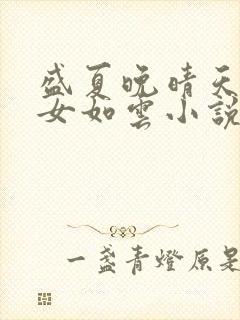 盛夏晚晴天
女如雲小說
一盞青燈原是